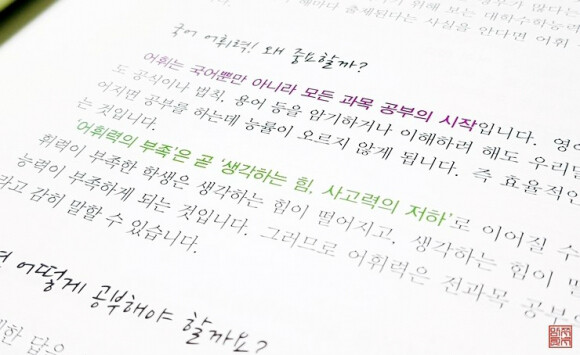 해마다 출제된다는 사실을 안다면 어휘
국어 어휘력! 왜 중요할까?
어휘는 국어뿐만 아니라 모든 과목 공부의 시작입니다. 영어
도 공식이나 법칙, 용어 등을 암기하거나 이해하려 해도 우리말
어지면 공부를 하는데 능률이 오르지 않게 됩니다. 즉 효율적인
는 것입니다.
'어휘력의 부족'은 곧 '생각하는 힘, 사고력의 저하'로 이어질 수
휘력이 부족한 학생은 생각하는 힘이 떨어지고, 생각하는 힘이 떨
능력이 부족하게 되는 것입니다. 그러므로 어휘력은 전과목 공부의
라고 감히 말할 수 있습니다.
어떻게 공부해야 할까요?
답은